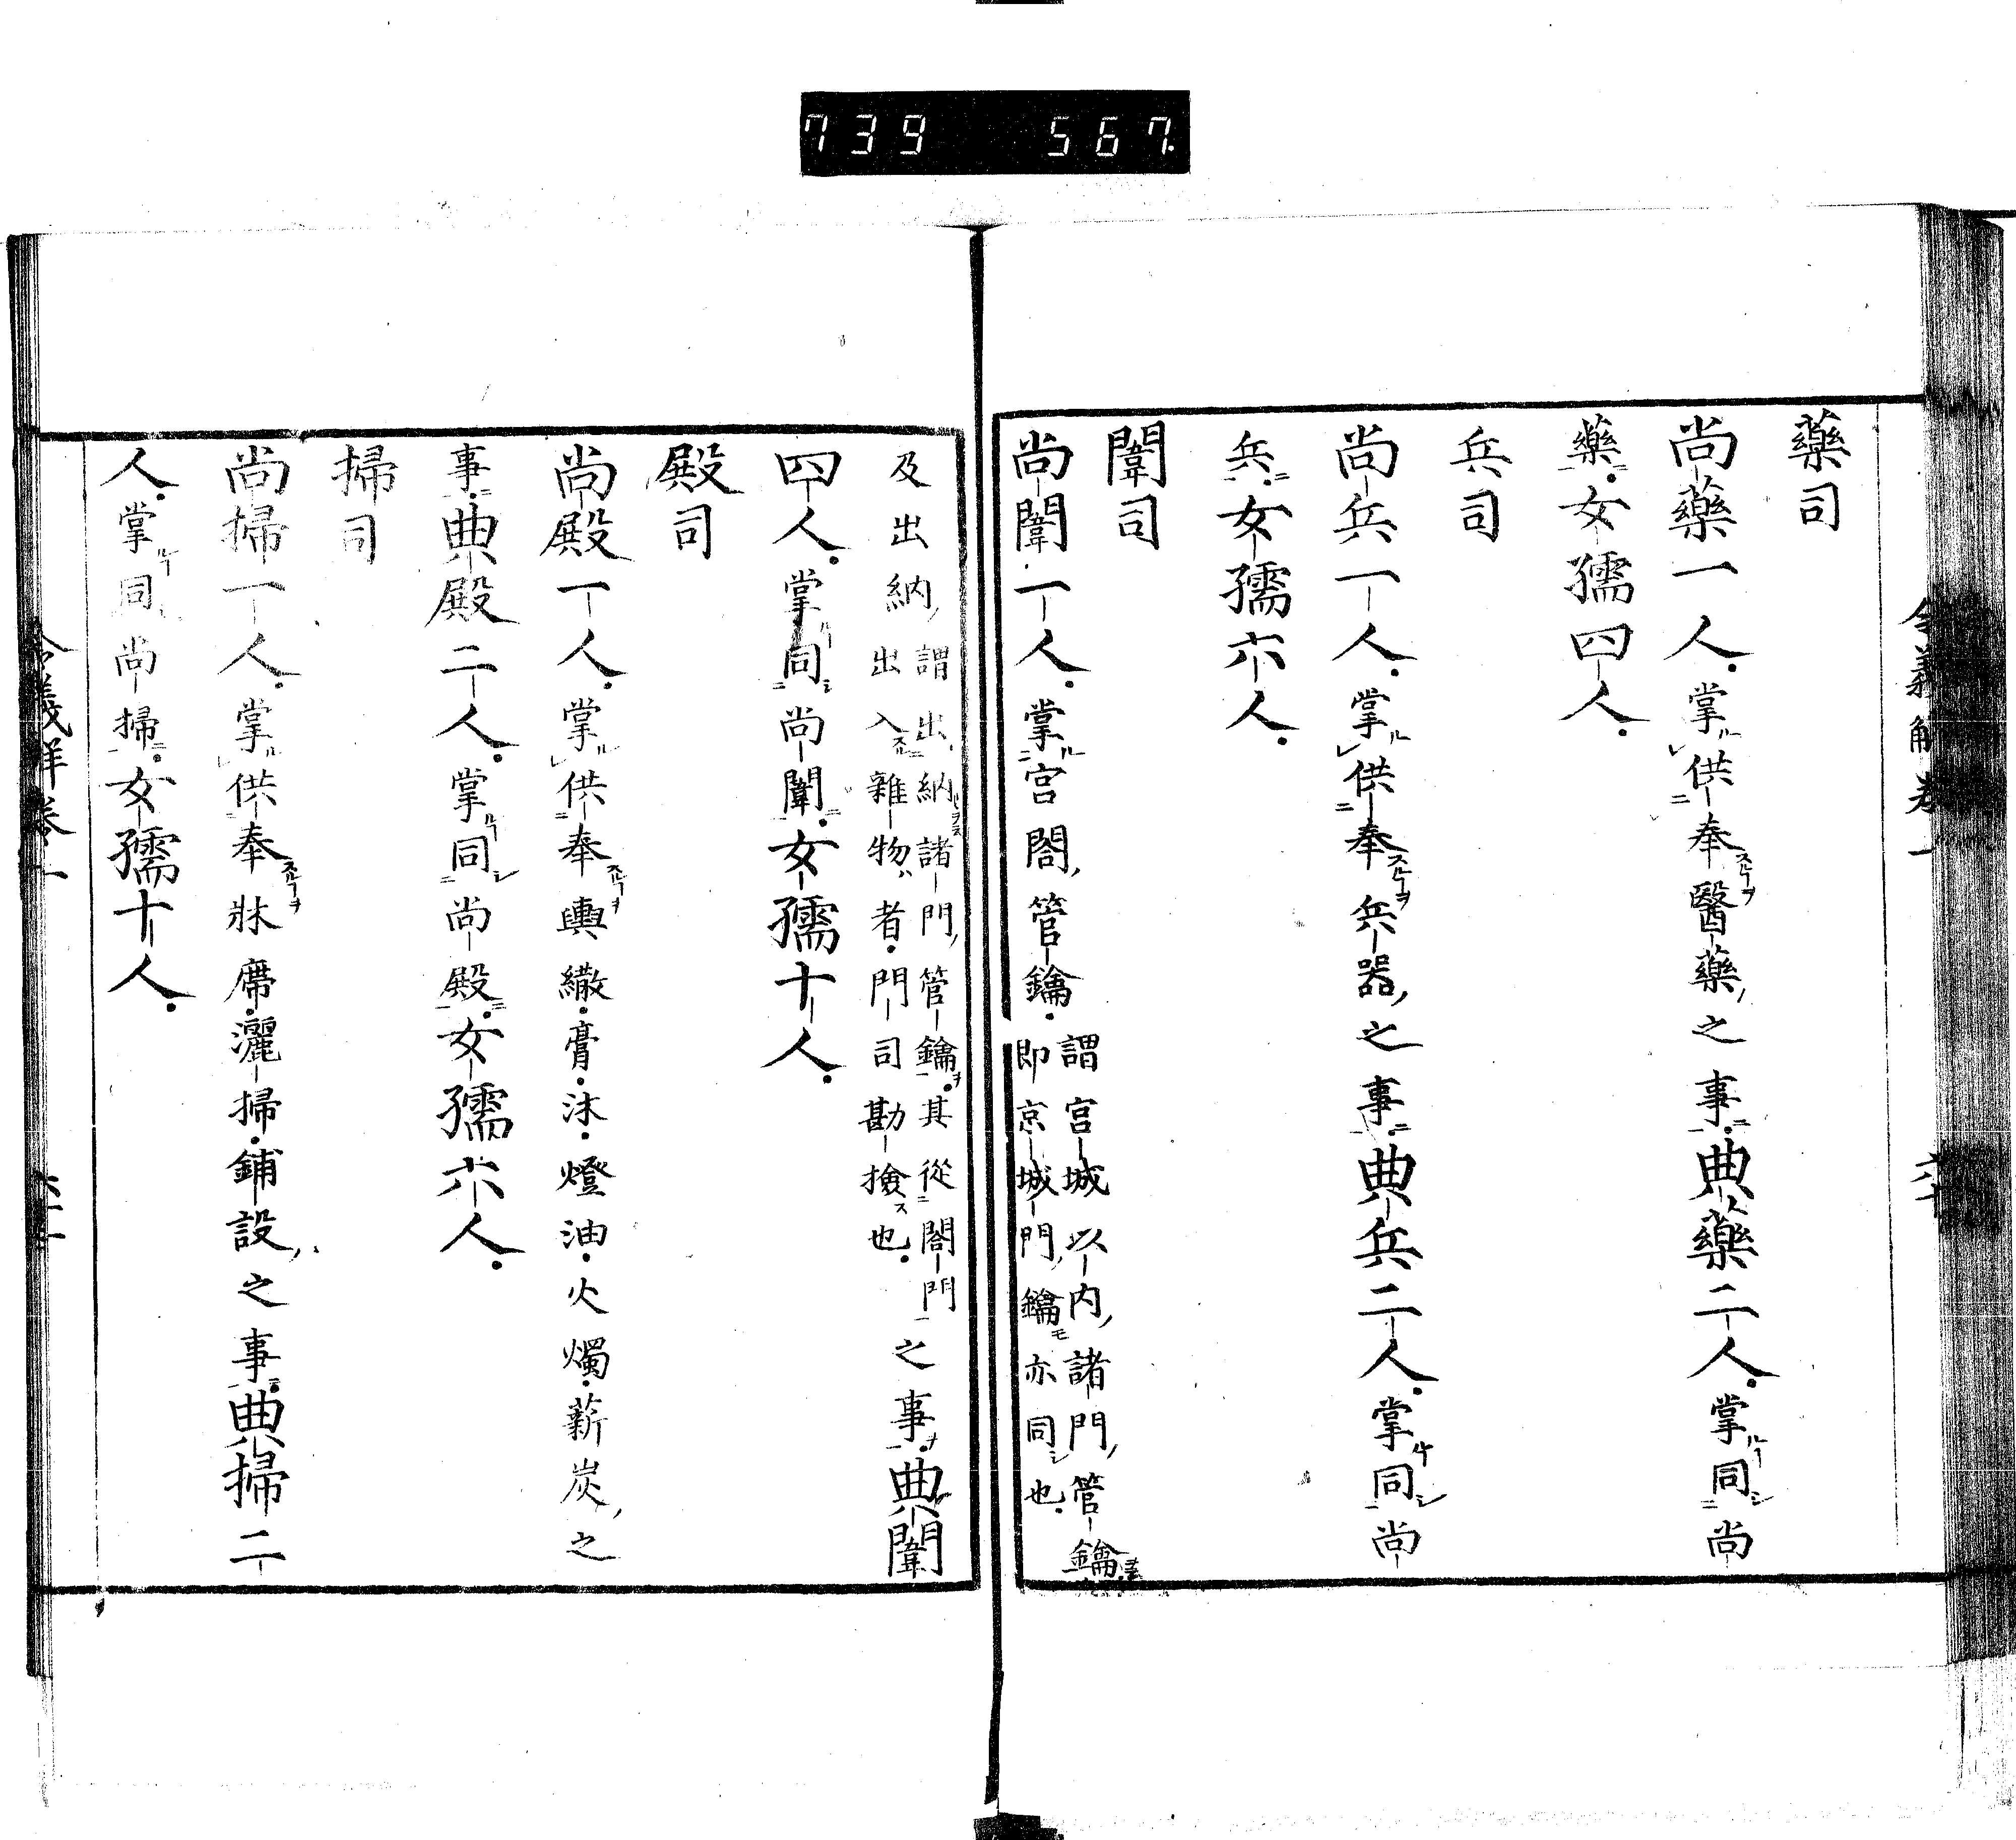 739 567
藥司
尚藥一人掌供奉醫藥之事典藥二人掌同尚
藥女孺四人
兵司
尚兵一人掌供奉兵器之事典兵二人掌同尚
兵女孺六人
闈司
尚闈一人掌宮閤管鑰謂宮城以内諸門管鑰
即京城門鑰亦同也
及出納謂出納諸門管鑰其從閤門
出入雜物者門司勘撿也之事典闈
四人掌同尚闈女孺十人
殿司
尚殿一人掌供奉輿繖膏沐燈油火燭薪炭之
事典殿二人掌同尚殿女孺六人
掃司
尚掃一人掌供奉牀席灑掃鋪設之事典掃二
人掌同尚掃女孺十人